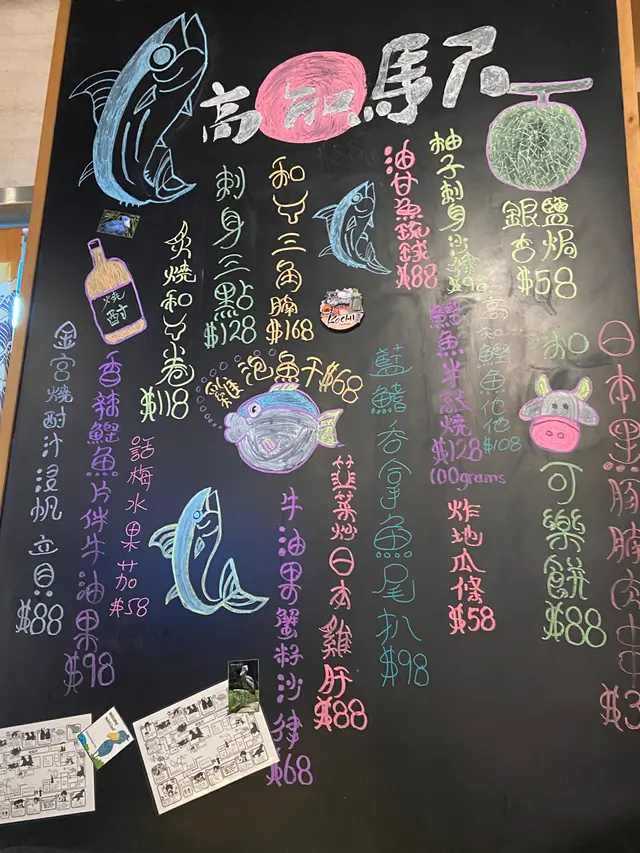 高知駅
日本黑豚腩肉串
$3
鹽焗
銀杏
$58
和
可樂餅
$88
柚子刺身沙律
$98
高知鰹魚他他
$108
鰹魚半敲燒
$128
100grams
炸地瓜條
$58
油甘魚
$88
藍鰭吞拿魚尾扒
$98
和牛三角腩
$168
Kochi
雞泡魚干$68
韮菜炒日本雞肝
$88
牛油果蟹籽沙律
$68
刺身三點
$128
炙燒和牛卷
$118
燒酎
話梅水果茄
$58
香辣鰹魚片伴牛油果
$98
金宮燒酎汁浸帆立貝
$88